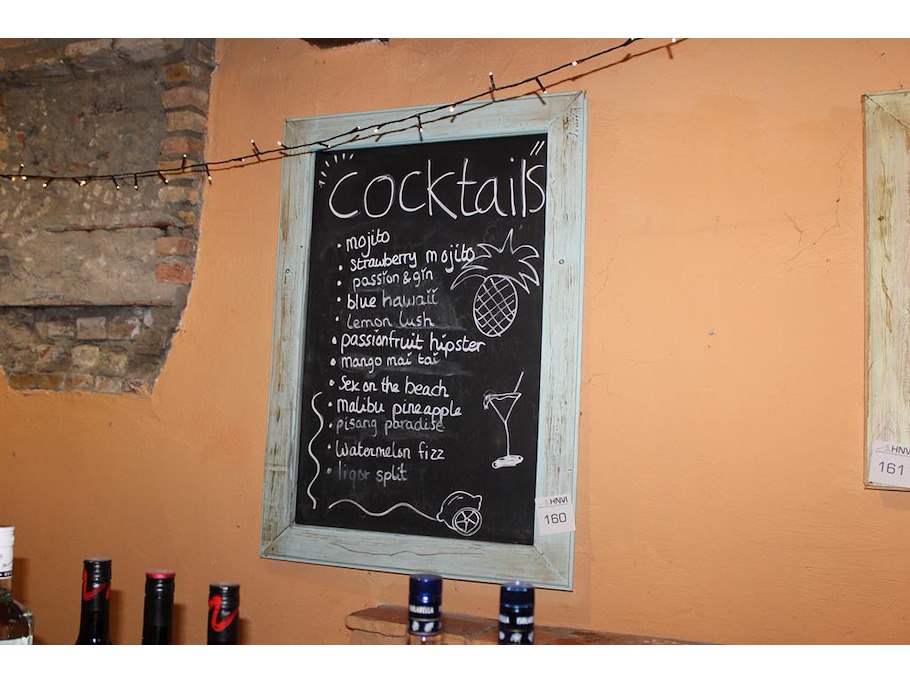 Cocktails
• mojito
• strawberry mojito
• passion & gin
• blue hawaii
• lemon lush
• passionfruit hipster
• mango mai tai
• Sex on the beach
• malibu pineapple
• pisang paradise
• Watermelon fizz
• liqor split
HNVI
160
HNVI
161
ISOLABELLA